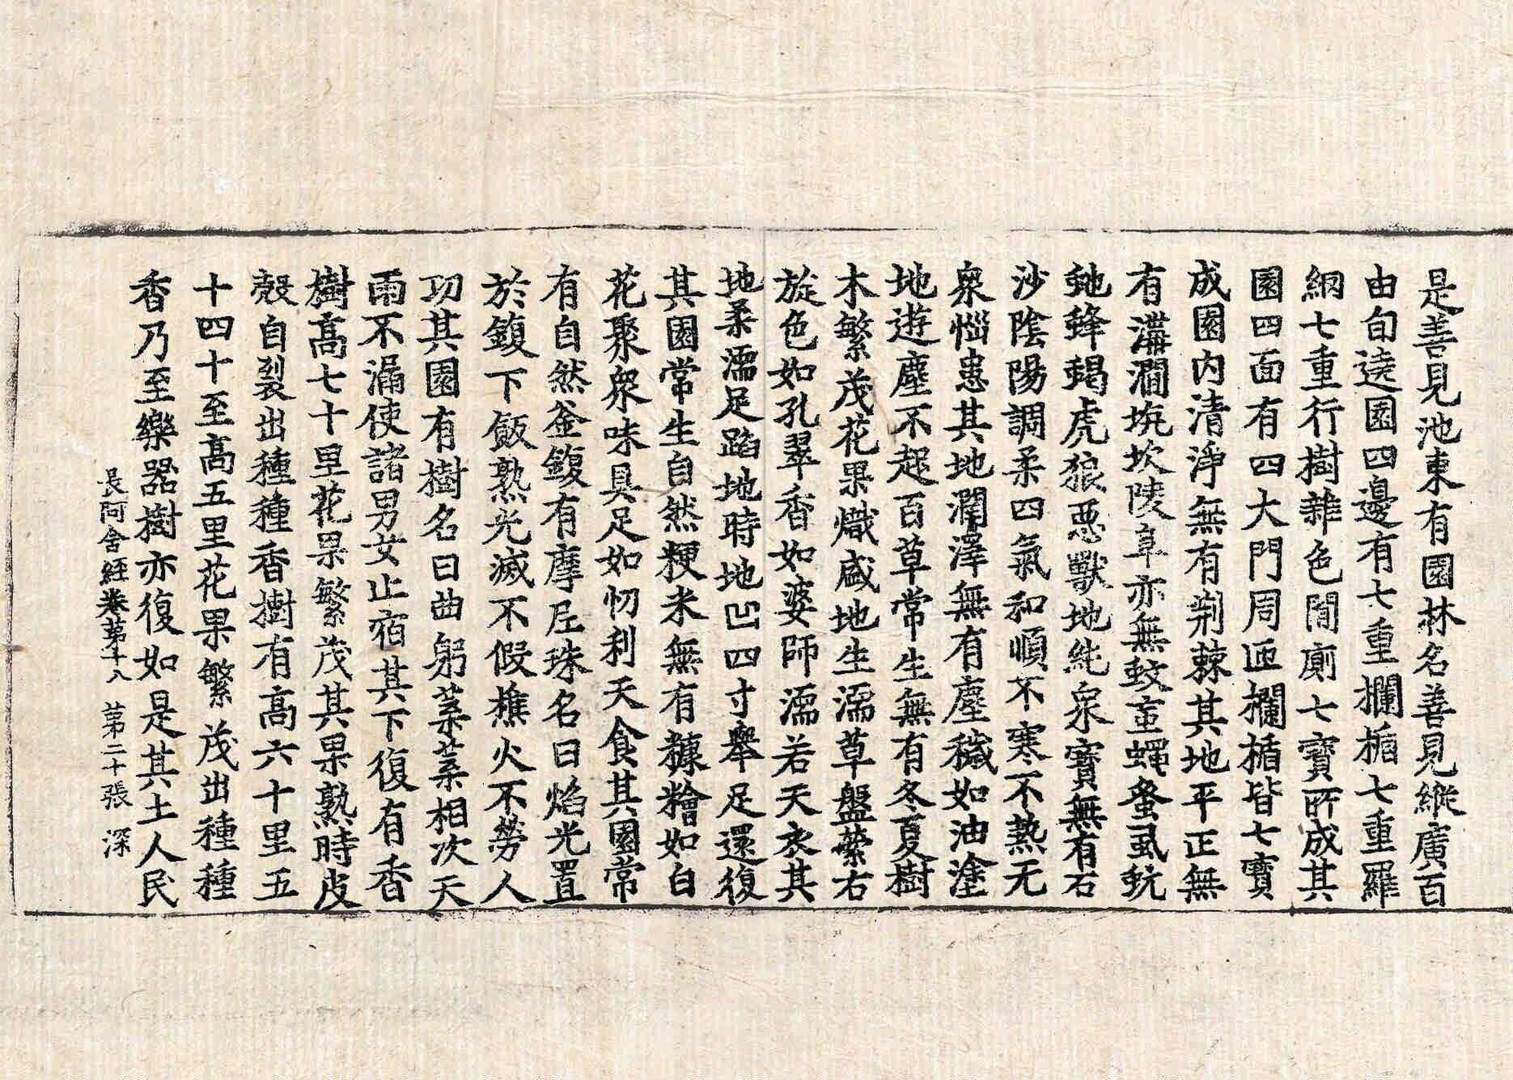 是善見池東有園林名善見縱廣百
由旬遶園四邊有七重欄楯七重羅
網七重行樹雜色間廁七寶所成其
園四面有四大門周匝欄楯皆七寶
成園內清淨無有荊棘其地平正無
有溝澗坑坎陵阜亦無蚊䖟蠅蚤虱蚖
虵蜂蝎虎狼惡獸地純衆寶無有石
沙陰陽調柔四氣和順不寒不熱无
衆惱患其地潤澤無有塵穢如油塗
地遊塵不起百草常生無有冬夏樹
木繁茂花果熾盛地生濡草盤縈右
旋色如孔翠香如婆師濡若天衣其
地柔濡足蹈地時地凹四寸舉足還復
其園常生自然粳米無有糠糩如白
花聚衆味具足如忉利天食其園常
有自然釜鍑有摩尼珠名曰焰光置
於鍑下飯熟光滅不假樵火不勞人
功其園有樹名曰曲躬葉葉相次天
雨不漏使諸男女止宿其下復有香
樹高七十里花果繁茂其果熟時皮
殼自裂出種種香樹有高六十里五
十四十至高五里花果繁茂出種種
香乃至樂器樹亦復如是其土人民
長阿含經卷第十八 第二十張 深